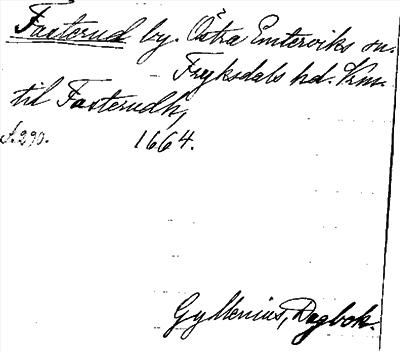 Fasterud by. Östra Emterviks sn.
Fryksdals hd. Vrm.
til Fasterudh,
s. 290. 1664.
Gyllenius, Dagbok.